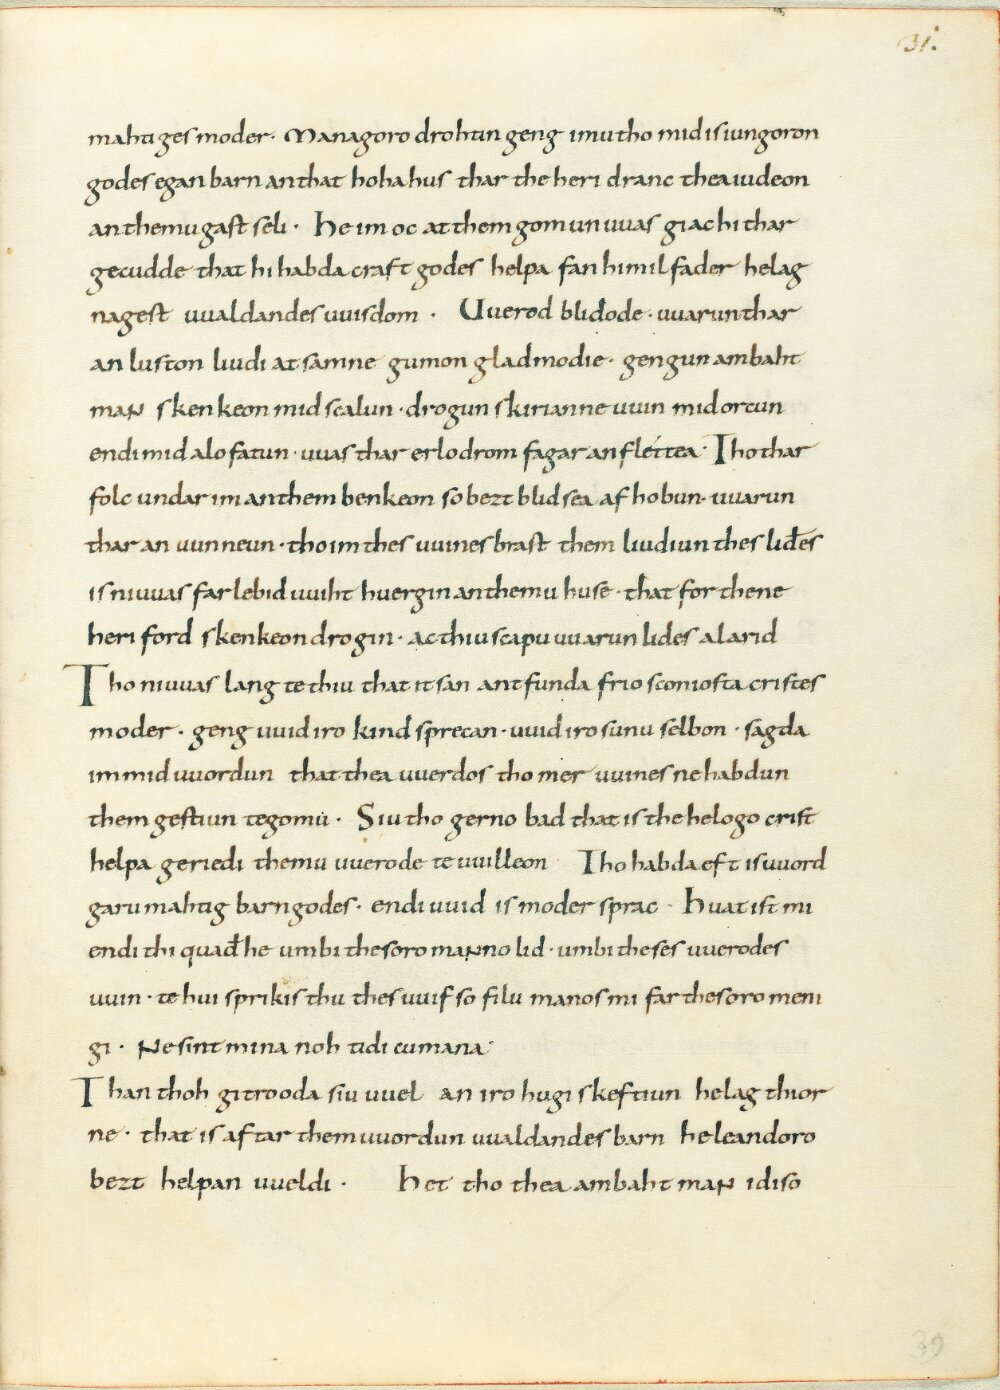 31.
mahtiges moder· Managoro drohtin geng imu tho mid is iungoron
godes egan barn an that hoha hus thar the heri dranc thea iudeon
an themu gastseli· He im oc at them gomun uuas giac hi thar
gecudde that hi habda craft godes helpa fan himilfader helag
nagest uualdandes uuisdom· Uuerod blidode· uuarun thar
an luston liudi at samne gumon gladmodie· gengun ambaht
man skenkeon mid scalun· drogun skirianne uuin mid orcun
endi mid alofatun· uuas thar erlo drom fagar an fléttea· Tho thar
folc undar im an them benkeon so bezt blidsea af hobun· uuarun
thar an uunneun· tho im thes uuines brast them liudiun thes liđes
is ni uuas farlebid uuiht huergin an themu huse· that for thene
heri ford skenkeon drogin· ac thiu scapu uuarun lides alarid
Tho ni uuas lang te thiu that it san antfunda frio sconiosta cristes
moder· geng uuid iro kind sprecan· uuid iro sunu selbon· sagda
im mid uuordun that thea uuerdos tho mer uuines ne habdun
them gestiun te gomu· Siu tho gerno bad that is the helogo crist
helpa geriedi themu uuerode te uuilleon Tho habda eft is uuord
garu mahtig barn godes· endi uuid is moder sprac· Huat ist mi
endi thi quađ he umbi thesoro manno lid· umbi theses uuerodes
uuin· te hui sprikis thu thes uuif so filu manos mi far thesoro meni
gi· Ne sint mina noh tidi cumana·
Than thoh gitrooda siu uuel an iro hugiskeftiun helag thior
ne· that is aftar them uuordun uualdandes barn heleandoro
bezt helpan uueldi· Het tho thea ambaht man idiso
30